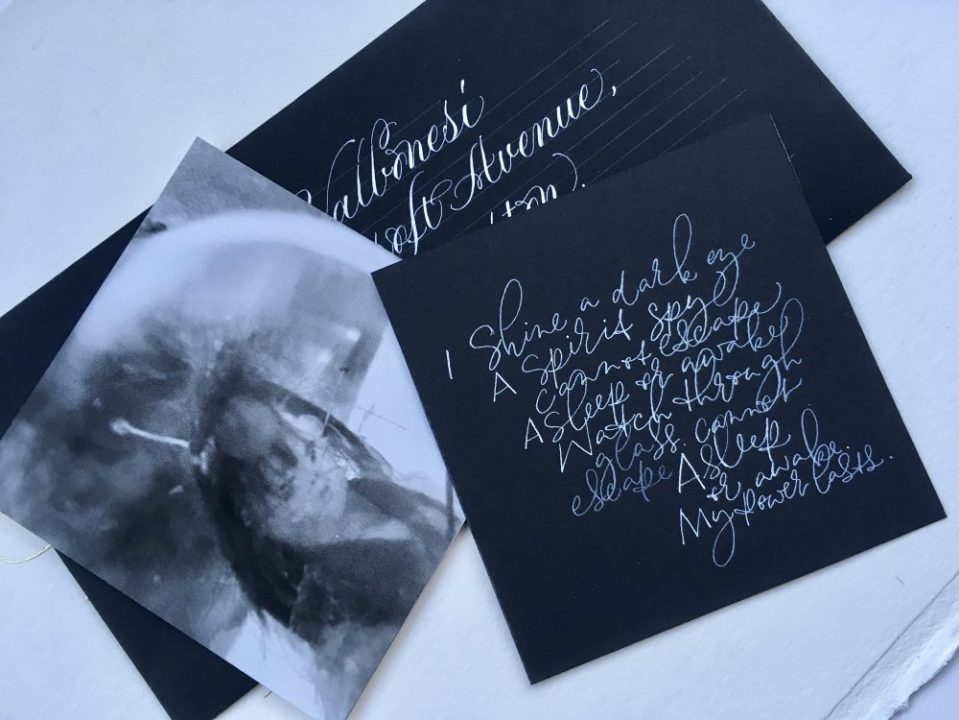 Valbonesi
soft Avenue,
I Shine a dark eye
A Spirit spy
Cannot escape
Asleep or awake
Watch through
glass. cannot
escape Asleep
or awake.
My power lasts.